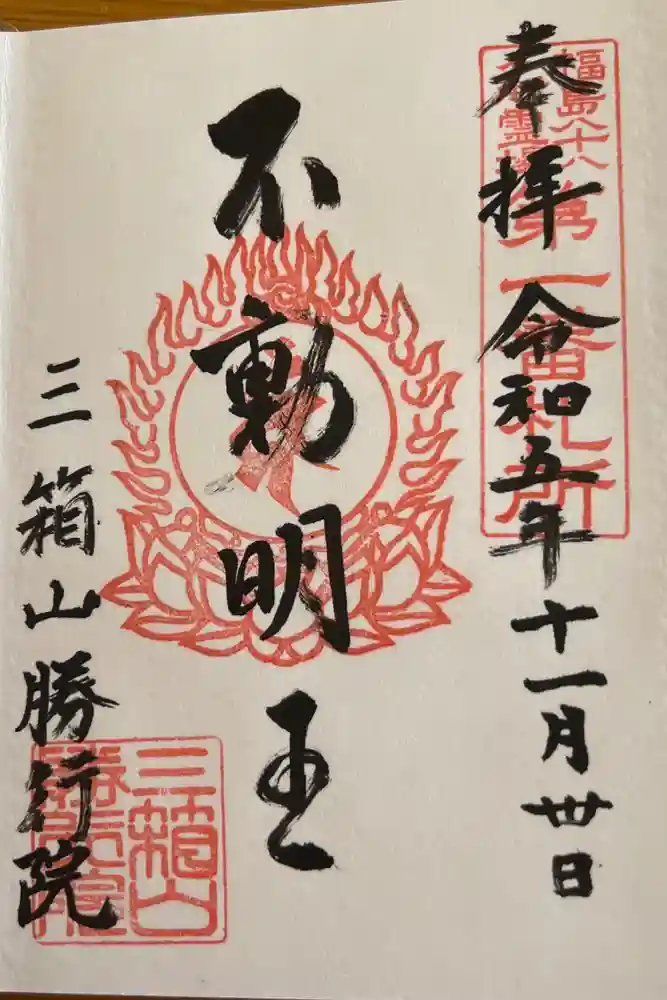 奉拝 令和五年十一月卅日
福島八十八
霊場第一番札所
不動明王
三箱山勝行院
三箱山
勝行院